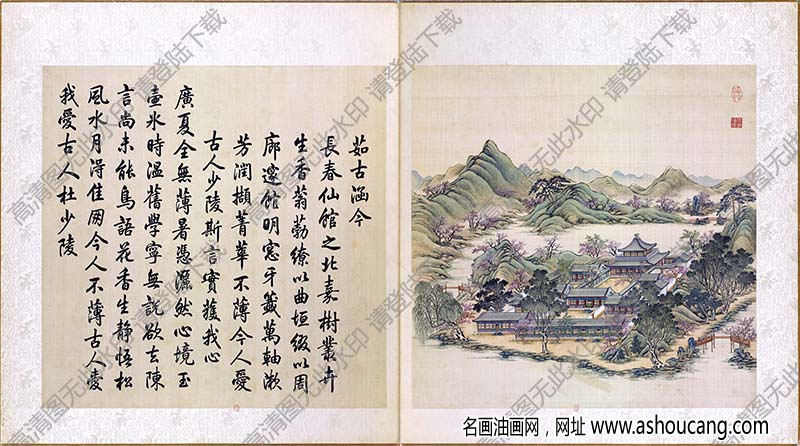 茹古涵今
長春仙館之北嘉樹叢卉
生香蓊葧繚以曲垣綴以周
廊邃館明窓牙籤萬軸漱
芳潤擷菁華不薄今人愛
古人少陵斯言實獲我心
廣夏全無薄暑憑灑然心境玉
壺氷時温舊學寧無說欲去陳
言尚未能鳥語花香生靜悟松
風水月淂佳朋今人不薄古人愛
我愛古人杜少陵
高清图无此水印 请登陆下载
高清图无此水印 请登陆下载
高清图无此水印 请登陆下载
名画油画网，网址 www.ashoucang.com